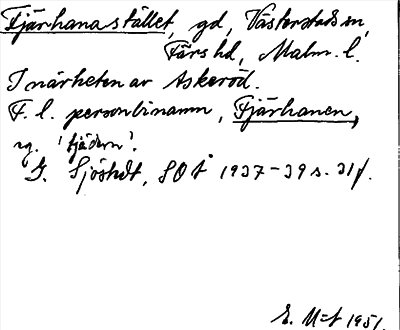 Fjärhanastället, gd, Västerstads sn,
Färs hd, Malm. l.
I närheten av Askeröd.
F. l. personbinamn, Fjärhanen,
eg. 'tjädern'.
G. Sjöstedt, SOÅ 1937-39 s. 31 f.
E. M 1951.